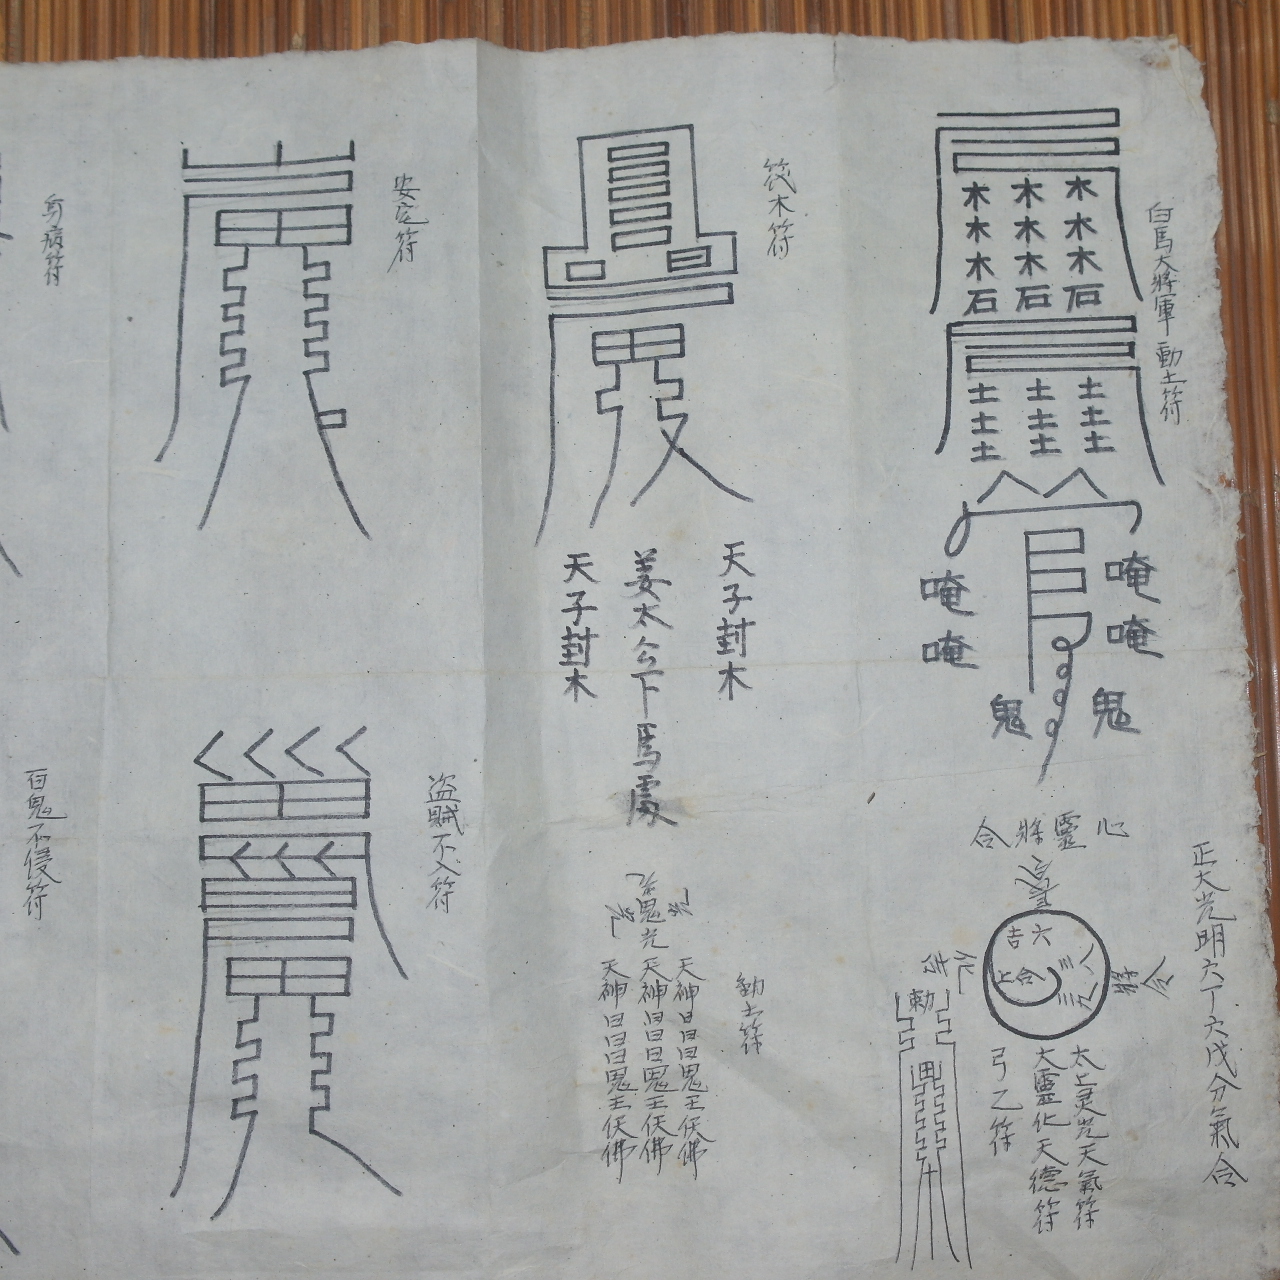 白馬大將軍 動土符
木木木石
木木木石
木木木石
土土土
土土土
土土土
唵唵
唵唵
鬼
鬼
伐木符
天子封木
姜太公下馬處
天子封木
安宅符
身病符
正大光明六丁六戊分氣合
心靈將合
六
吉
合
上
勅
太上灵光天氣符
大靈化天德符
弓乙符
動土符
鬼光
天神日日日鬼王天佛
天神日日日鬼王天佛
天神日日日鬼王天佛
盜賊不入符
百鬼不侵符